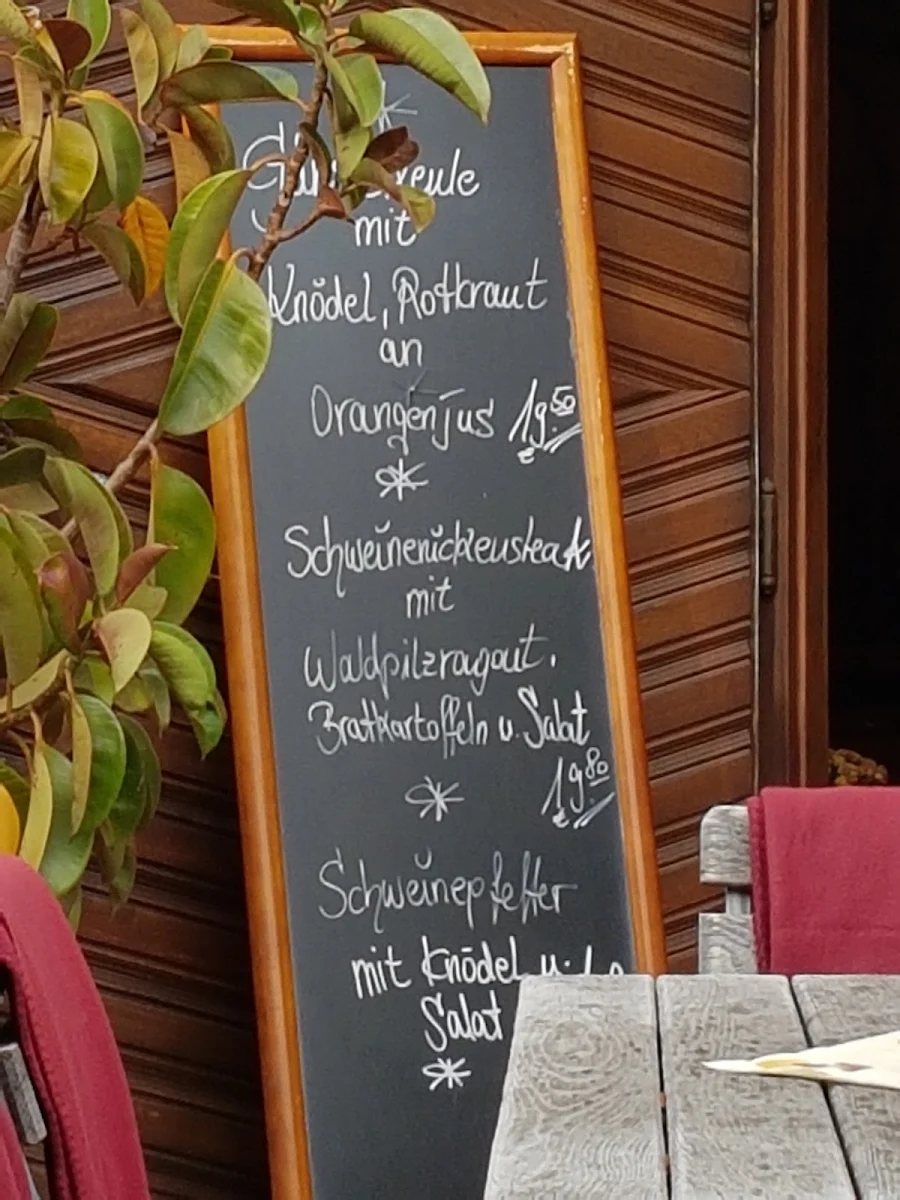 mit
Knödel, Rotkraut
an
Orangenjus 19.50
Schweinerückensteak
mit
Waldpilzragout,
Bratkartoffeln u. Salat
19.80
Schweinepfeffer
mit Knödel
Salat